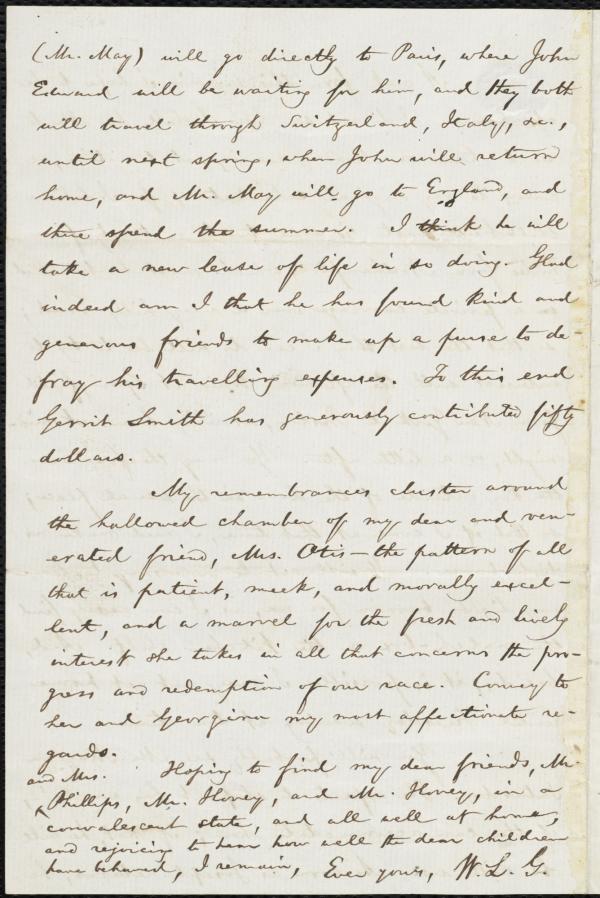 (Mr. May) will go directly to Paris, where John
Edward will be waiting for him, and they both
will travel through Switzerland, Italy, &c.,
until next spring, when John will return
home, and Mr. May will go to England, and
there spend the summer. I think he will
take a new lease of life in so doing. Glad
indeed am I that he has found kind and
generous friends to make up a purse to de-
fray his travelling expenses. To this end
Gerrit Smith has generously contributed fifty
dollars.
My remembrances cluster around
the hallowed chamber of my dear and ven-
erated friend, Mrs. Otis—the pattern of all
that is patient, meek, and morally excel-
lent, and a marvel for the fresh and lively
interest she takes in all that concerns the pro-
gress and redemption of our race. Convey to
her and Georgina my most affectionate re-
gards.
Hoping to find my dear friends, Mr.
and Mrs.
Phillips, Mr. Hovey, and Mr. Hovey, in a
convalescent state, and all well at home,
and rejoicing to hear how well the dear children
have behaved, I remain, Ever yours, W. L. G.